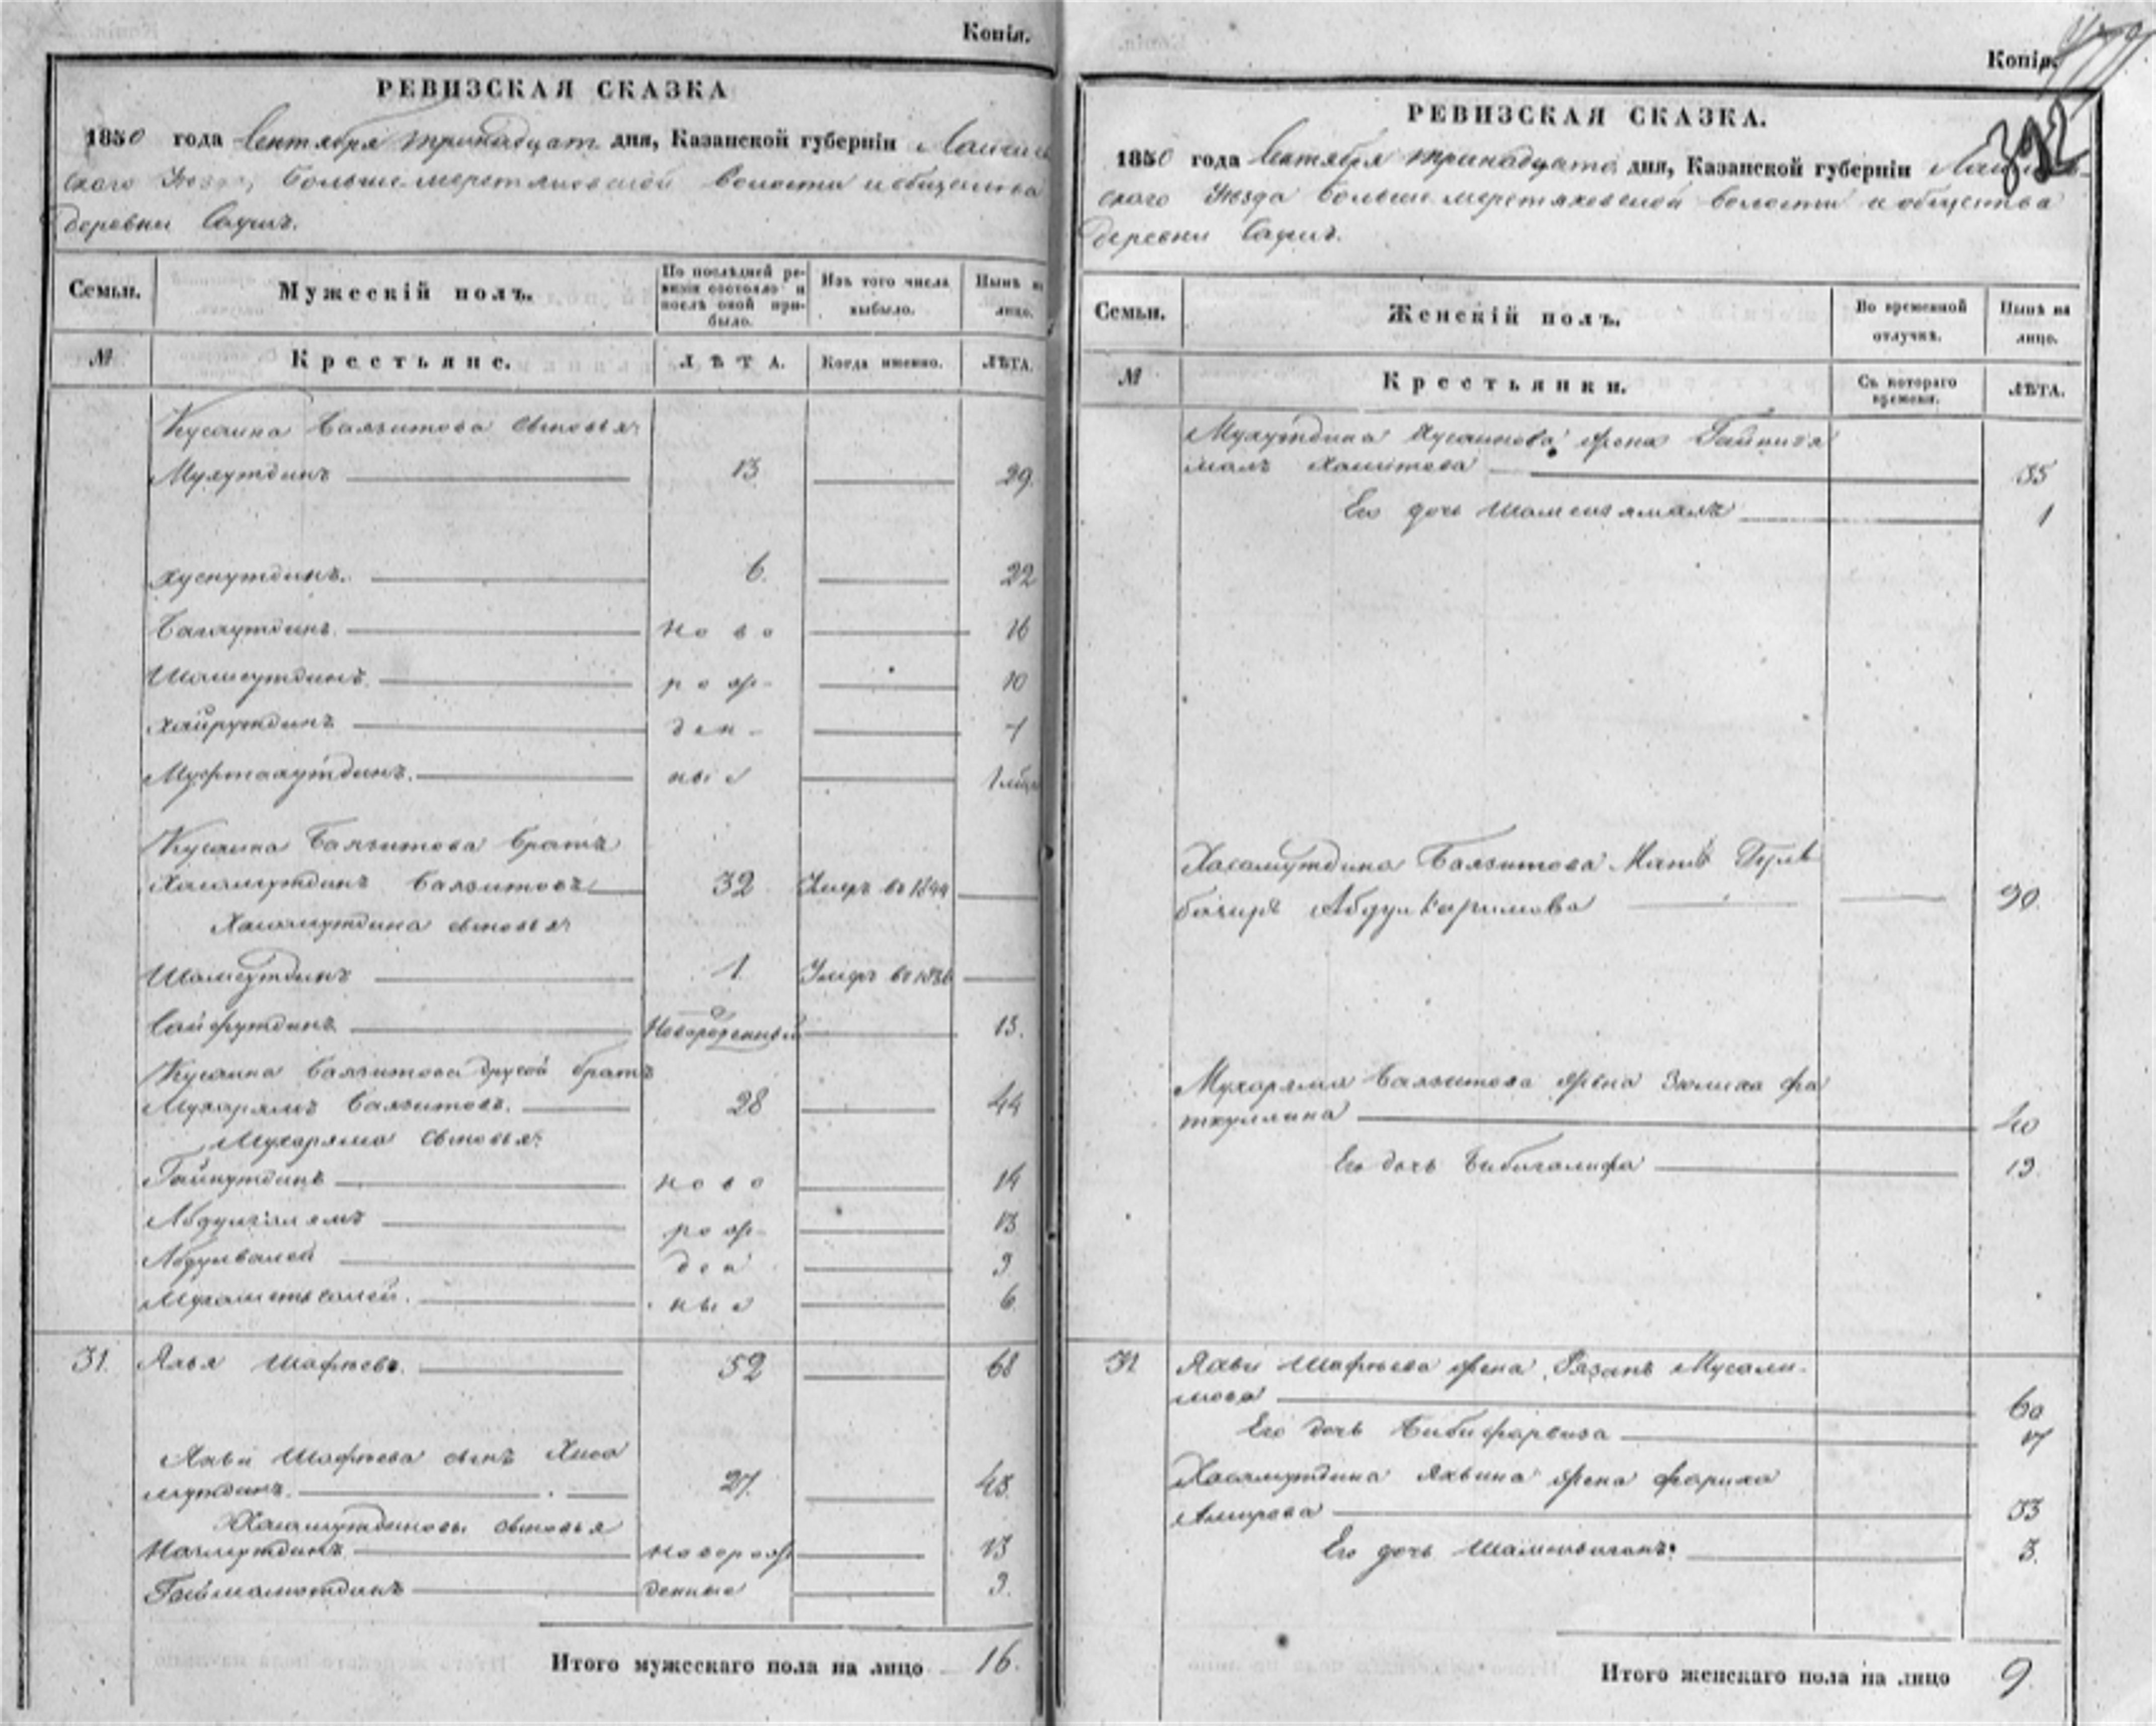 Копія.
РЕВИЗСКАЯ СКАЗКА
1850 года Сентября тринадцат дня, Казанской губерніи Лаишев
скаго Уезда, Больше меретяковской волости и общества
деревни Сауш.
Семьи.
Мужескій полъ.
По послѣдней ре-
визіи состояло и
послѣ оной при-
было.
Изъ того числа
выбыло.
Нынѣ на
лицо.
№
Крестьяне.
ЛѢТА.
Когда именно.
ЛѢТА.
Хусаина Баязитова сыновья:
Мухутдинъ 13 29.
Хуснутдинъ. 6. 22
Багаутдинъ. ново 16
Шамсутдинъ. рож- 10
Хайрутдинъ ден-
Мифтахутдинъ. ные 1
Хусаина Баязитова братъ
Хисамутдинъ Баязитовъ 32 Умеръ въ 1844
Хисамутдина сыновья:
Шамсутдинъ 1. Умеръ въ 1836
Сайфутдинъ Новорожденный 13.
Хусаина Баязитова другой братъ
Мухарямъ Баязитовъ. 28 44
Мухаряма сыновья:
Гайнутдинъ ново 14
Абдулгалямъ рож- 13
Абдулвалей ден 9
Мухаметьвалей. ные 6
31. Яхья Шафѣевъ. 52 68
Яхьи Шафѣева сынъ Хиса
мутдинъ. 27. 43.
Хисамутдиновы сыновья
Нажмутдинъ новорож 13
Гаймалютдинъ денные 9.
Итого мужескаго пола на лицо 16.
Копія.
392
РЕВИЗСКАЯ СКАЗКА.
1850 года Сентября тринадцата дня, Казанской губерніи Лаишев-
скаго Уезда Больше меретяковской волости и общества
деревни Сауш.
Семьи.
Женскій полъ.
Во временной
отлучкѣ.
Нынѣ на
лицо.
№
Крестьянки.
Съ котораго
времени.
ЛѢТА.
Мухутдина Хусаинова жена Гайнизя
малъ Хамитова 35
Его дочь Шамсизямалъ 1
Хисамутдина Баязитова Мать Гуль
багиръ Абдулкаримова 90.
Мухаряма Баязитова жена Зюлиха Фа
ткуллина 40
Его дочь Бибигалифа 19.
31 Яхьи Шафѣева жена Рязанъ Мусали-
мова 60
Его дочь Бибифарвиза 17
Хисамутдина Яхьина жена Фариха
Амирова 33
Его дочь 3.
Итого женскаго пола на лицо 9